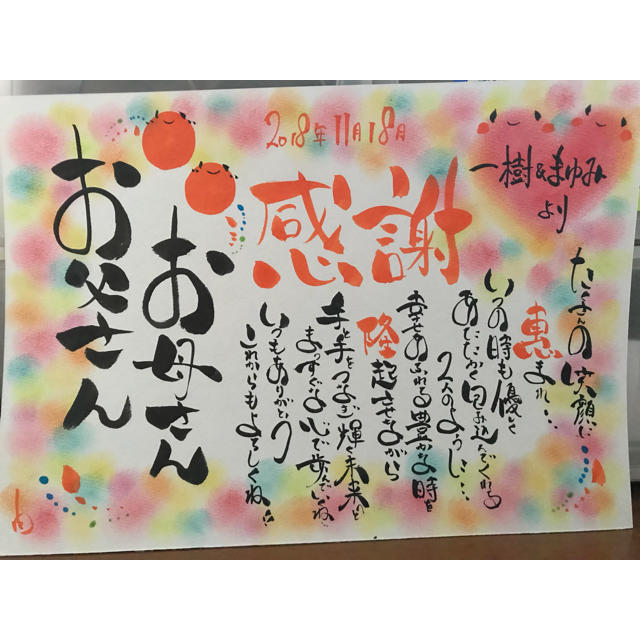 2018年11月18日
一樹&まゆみ
より
感謝
たくさんの笑顔に
恵まれ…
いつの時も優しく
あたたかく包み込んでくれる
2人のように…
幸せあふれる豊かな時を
隆起させながら
手と手をつなぎ輝く未来へと
まっすぐな心で歩んでいくね
いつもありがとう
これからもよろしくね!!
お母さん
お父さん